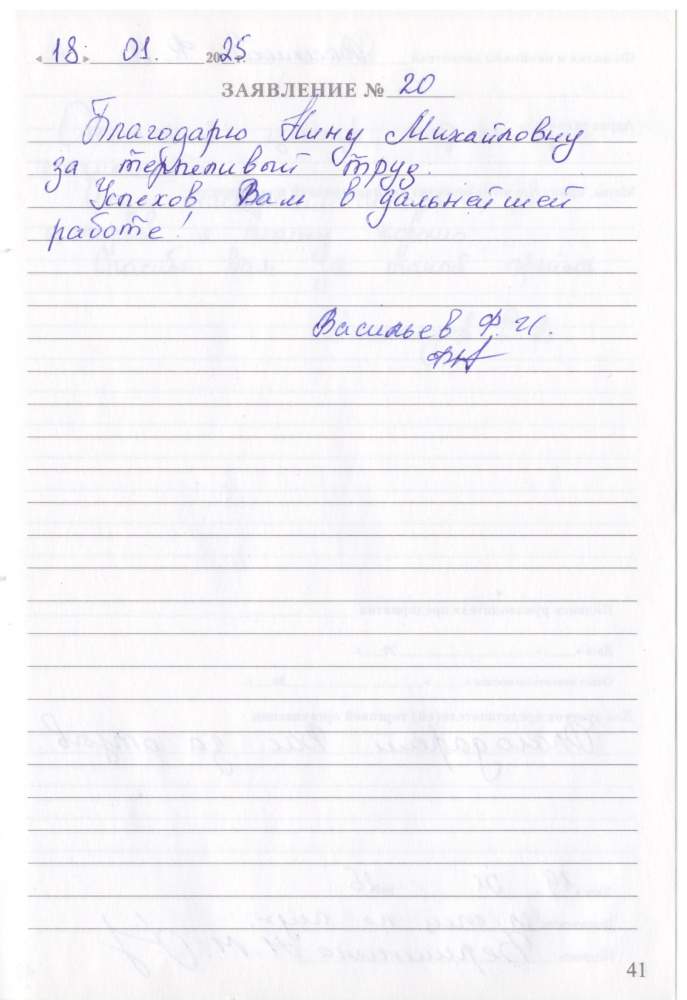 «18» 01. 2025 г.
ЗАЯВЛЕНИЕ № 20
Благодарю Нину Михайловну
за терпеливый труд.
Успехов Вам в дальнейшей
работе!
Васильев Ф. И.
41